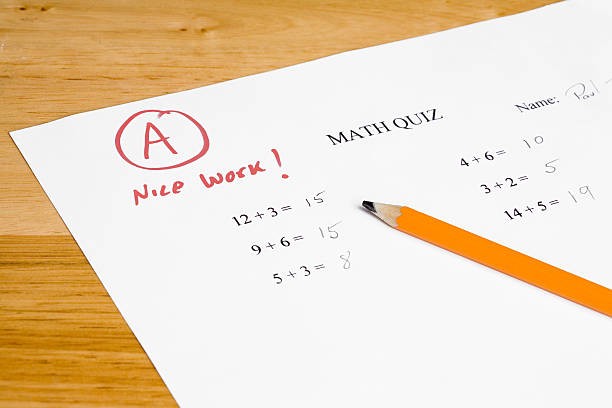 A
Nice Work!
MATH QUIZ
Name: Paul
12 + 3 = 15
9 + 6 = 15
5 + 3 = 8
4 + 6 = 10
3 + 2 = 5
14 + 5 = 19